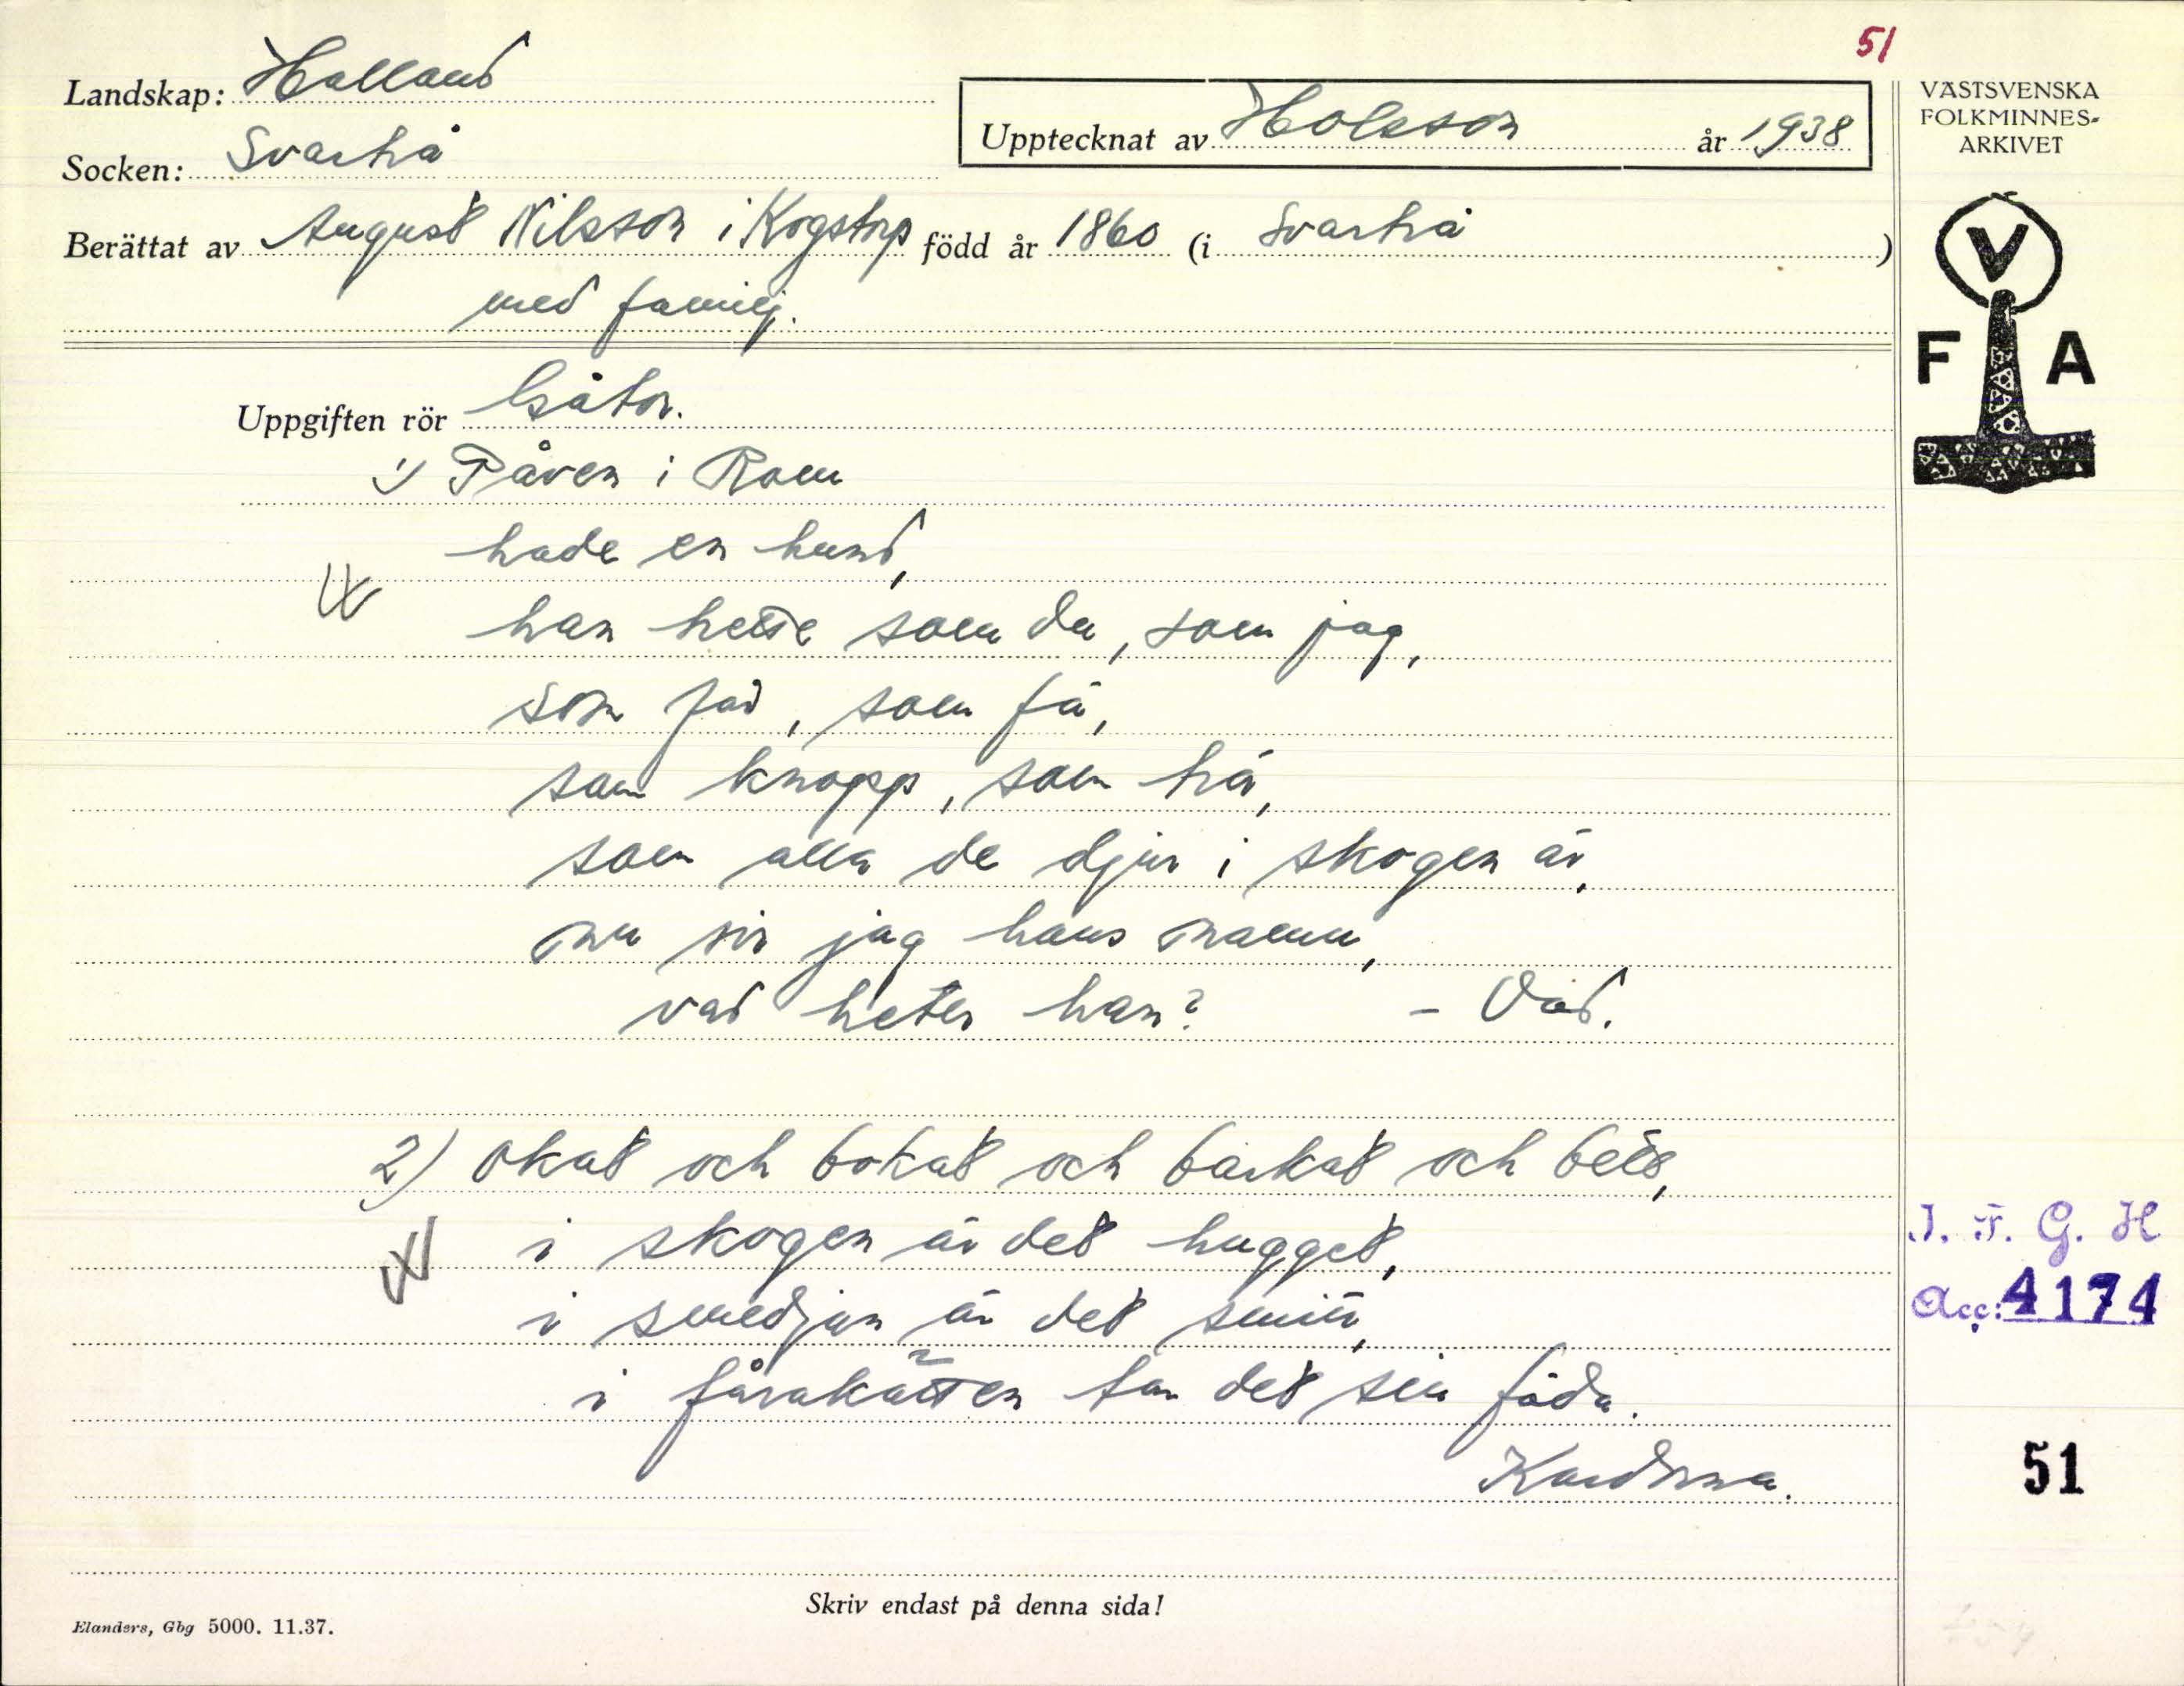 51
Landskap: Halland
Upptecknat av Holsson år 1938
VÄSTSVENSKA
FOLKMINNES-
ARKIVET
Socken: Svartrå
Berättat av August Nilsson i Kogstorp född år 1860 (i Svartrå)
med familj.
V
F A
Uppgiften rör Gåtor.
1) Påven i Rom
hade en hund,
han hette som du, som jag,
som far, som få,
som knopp, som trä,
som alla de djur i skogen är,
nu sir jag hans namn,
vad heter han? - Vad.
2) Okat och bokat och barkat och
i skogen är det hugget,
i smedjan är det
i fårakätten tar det sin föda.
Kardorna.
J. F. G. H
Acc: 4174
51
Skriv endast på denna sida!
Elanders, Gbg 5000. 11.37.